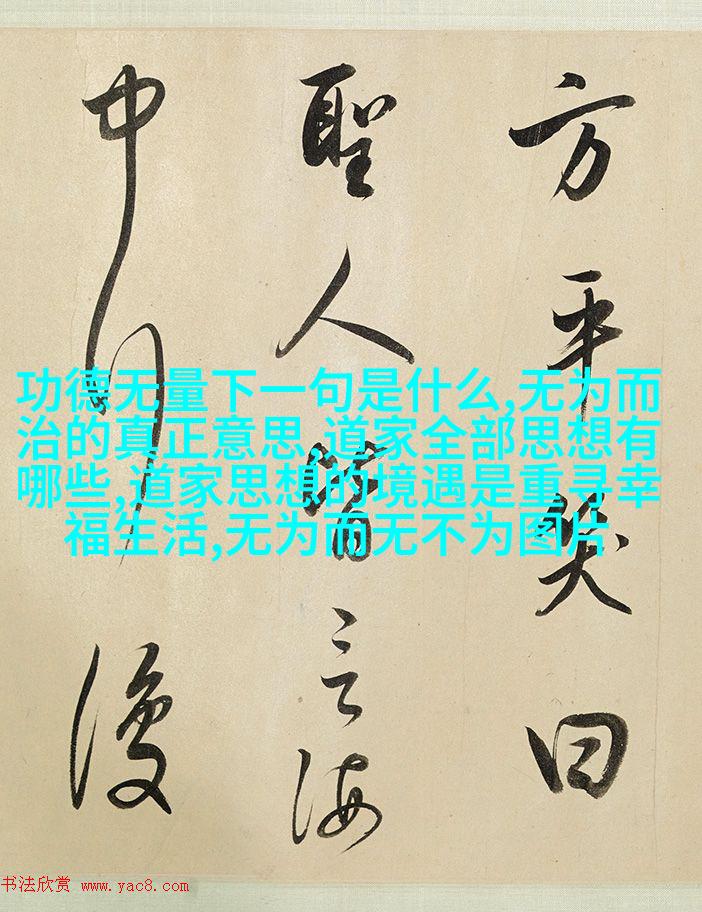 方平笑曰
聖人皆言海
中行復
功德无量下一句是什么,无为而
治的真正意思,道家全部思想有
哪些,道家思想的境遇是重寻幸
福生活,无为而无不为图片
书法欣赏 www.yac8.com